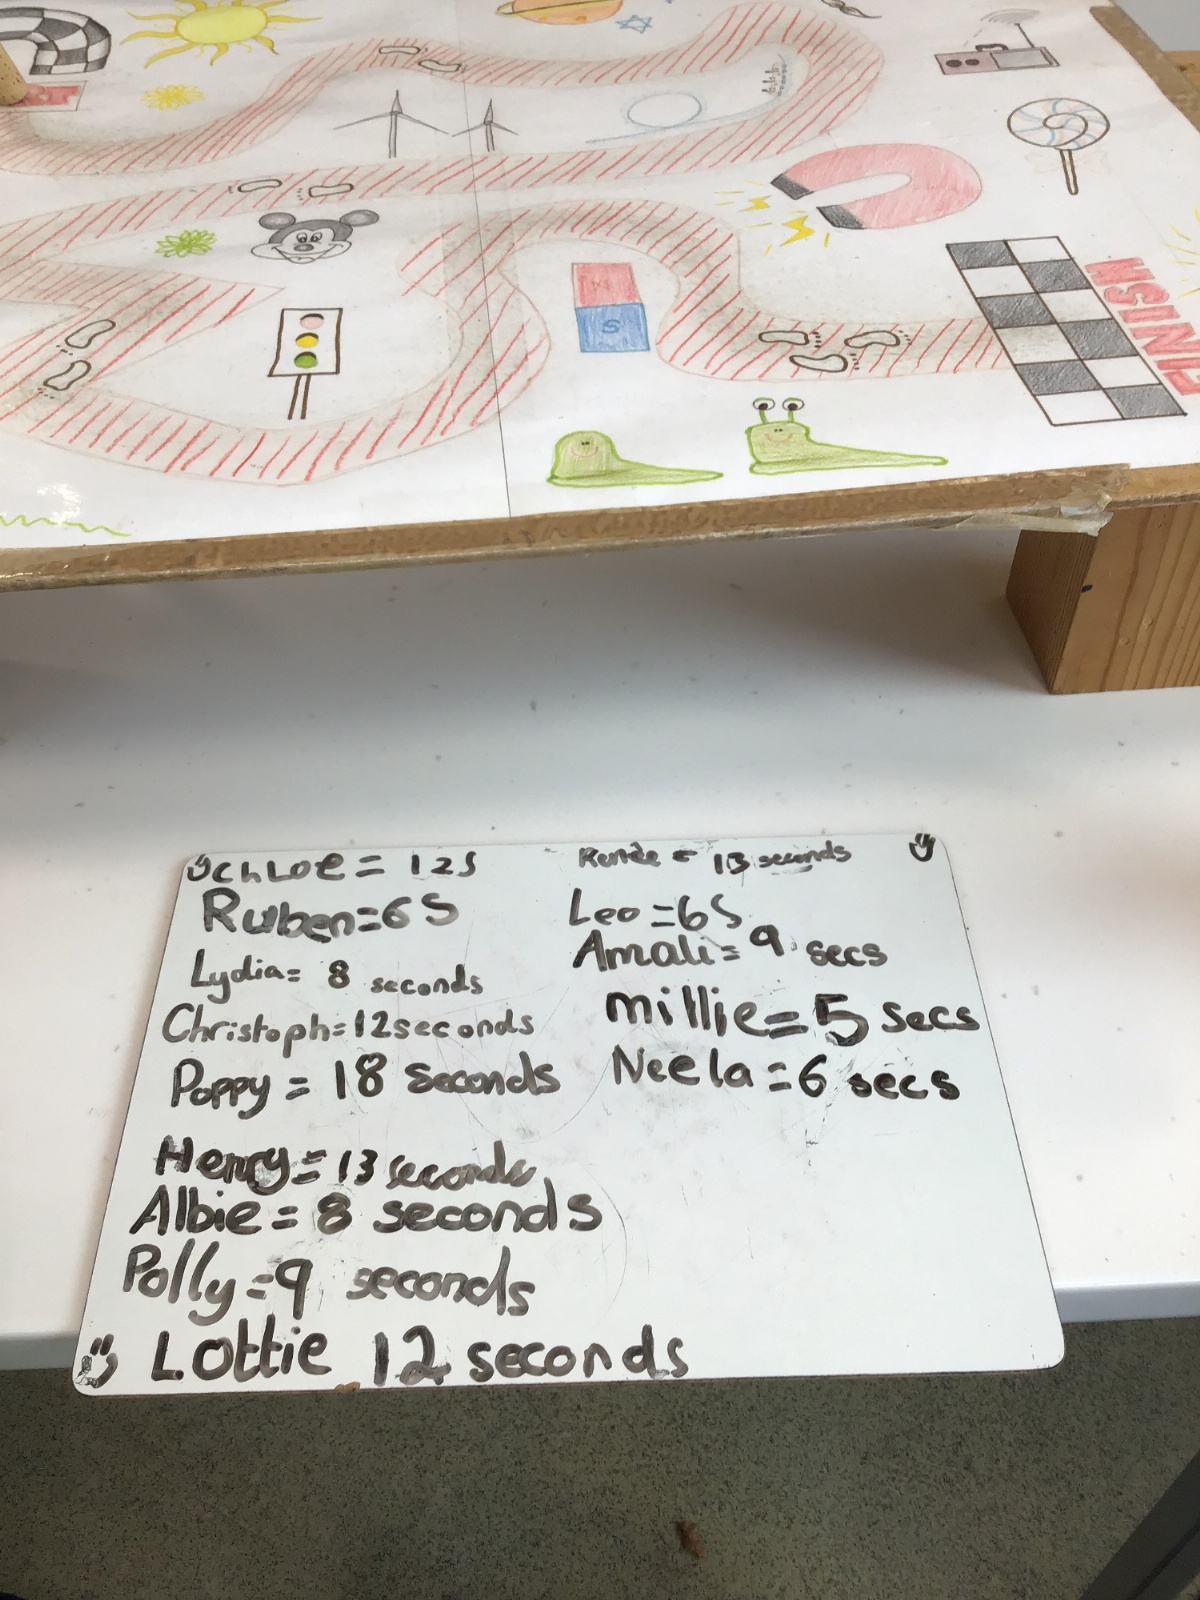 FINISH
N
S
Chloe = 12S
Ruben=6S
Lydia= 8 seconds
Christoph=12seconds
Poppy = 18 seconds
Henry= 13 seconds
Albie = 8 seconds
Polly=9 seconds
Lottie 12 seconds
Renée = 13 seconds
Leo =6S
Amali= 9 secs
millie=5 secs
Neela =6 secs